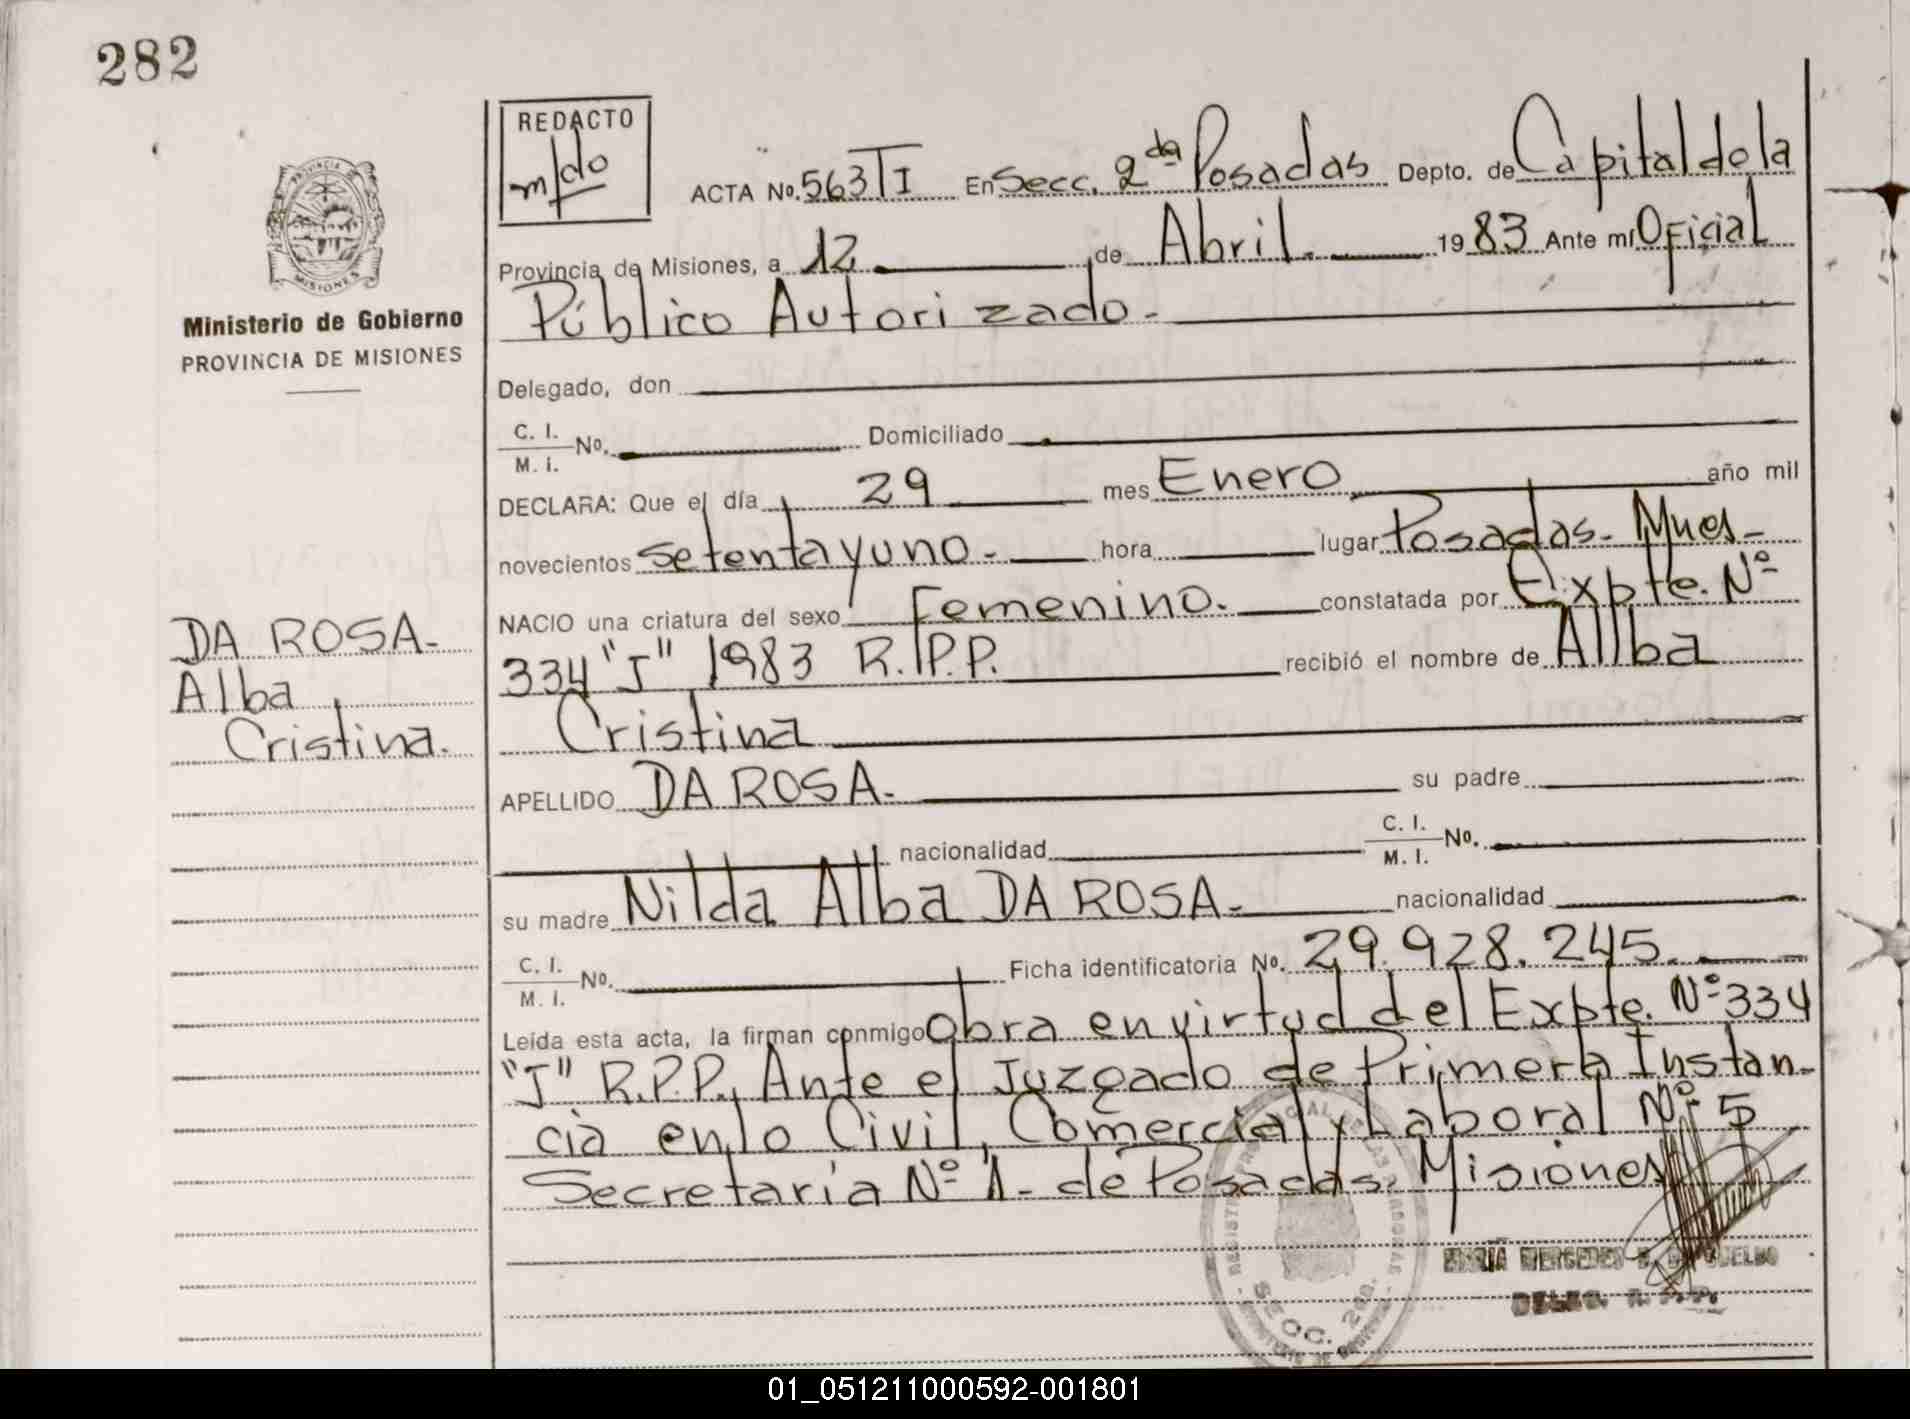 282
REDACTO
m/do
PROVINCIA DE
MISIONES
Ministerio de Gobierno
PROVINCIA DE MISIONES
ACTA No. 563 TI En Secc. 2da Posadas Depto. de Capital de la
Provincia de Misiones, a 12 de Abril. 1983 Ante mí Oficial
Público Autorizado.-
Delegado, don
C. I.
M. I. No. Domiciliado
DECLARA: Que el día 29 mes Enero año mil
novecientos setenta y uno.- hora lugar Posadas. Mnes-
NACIO una criatura del sexo Femenino. constatada por Expte. Nº
334 "J" 1983 R.P.P. recibió el nombre de Alba
Cristina
DA ROSA.-
Alba
Cristina.
APELLIDO DA ROSA.- su padre
nacionalidad C. I.
M. I. No.
su madre Nilda Alba DA ROSA.- nacionalidad
C. I.
M. I. No. Ficha identificatoria No. 29.928.245.
Leída esta acta, la firman conmigo Obra en virtud del Expte. Nº 334
"J" R.P.P., Ante el Juzgado de Primera Instan-
cia en lo Civil, Comercial y Laboral Nº 5
Secretaría Nº 1.- de Posadas. Misiones
SECC. 2da.
MARIA MERCEDES
DELEG. R. P. P.
01_051211000592-001801